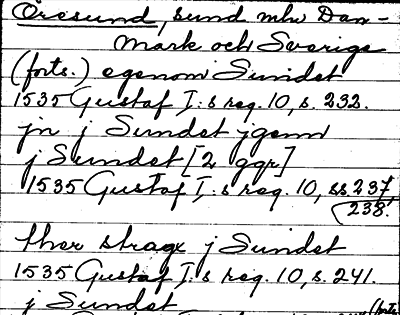 Öresund, sund mln Dan-
mark och Sverige
(forts.) egenom Sundet
1535 Gustaf I:s reg. 10, s. 232.
jn j Sundet jgenn
j Sundet [2 ggr]
1535 Gustaf I:s reg. 10, ss 237,
238.
ther strax j Sundet
1535 Gustaf I:s reg. 10, s. 241.
j Sundet (forts.